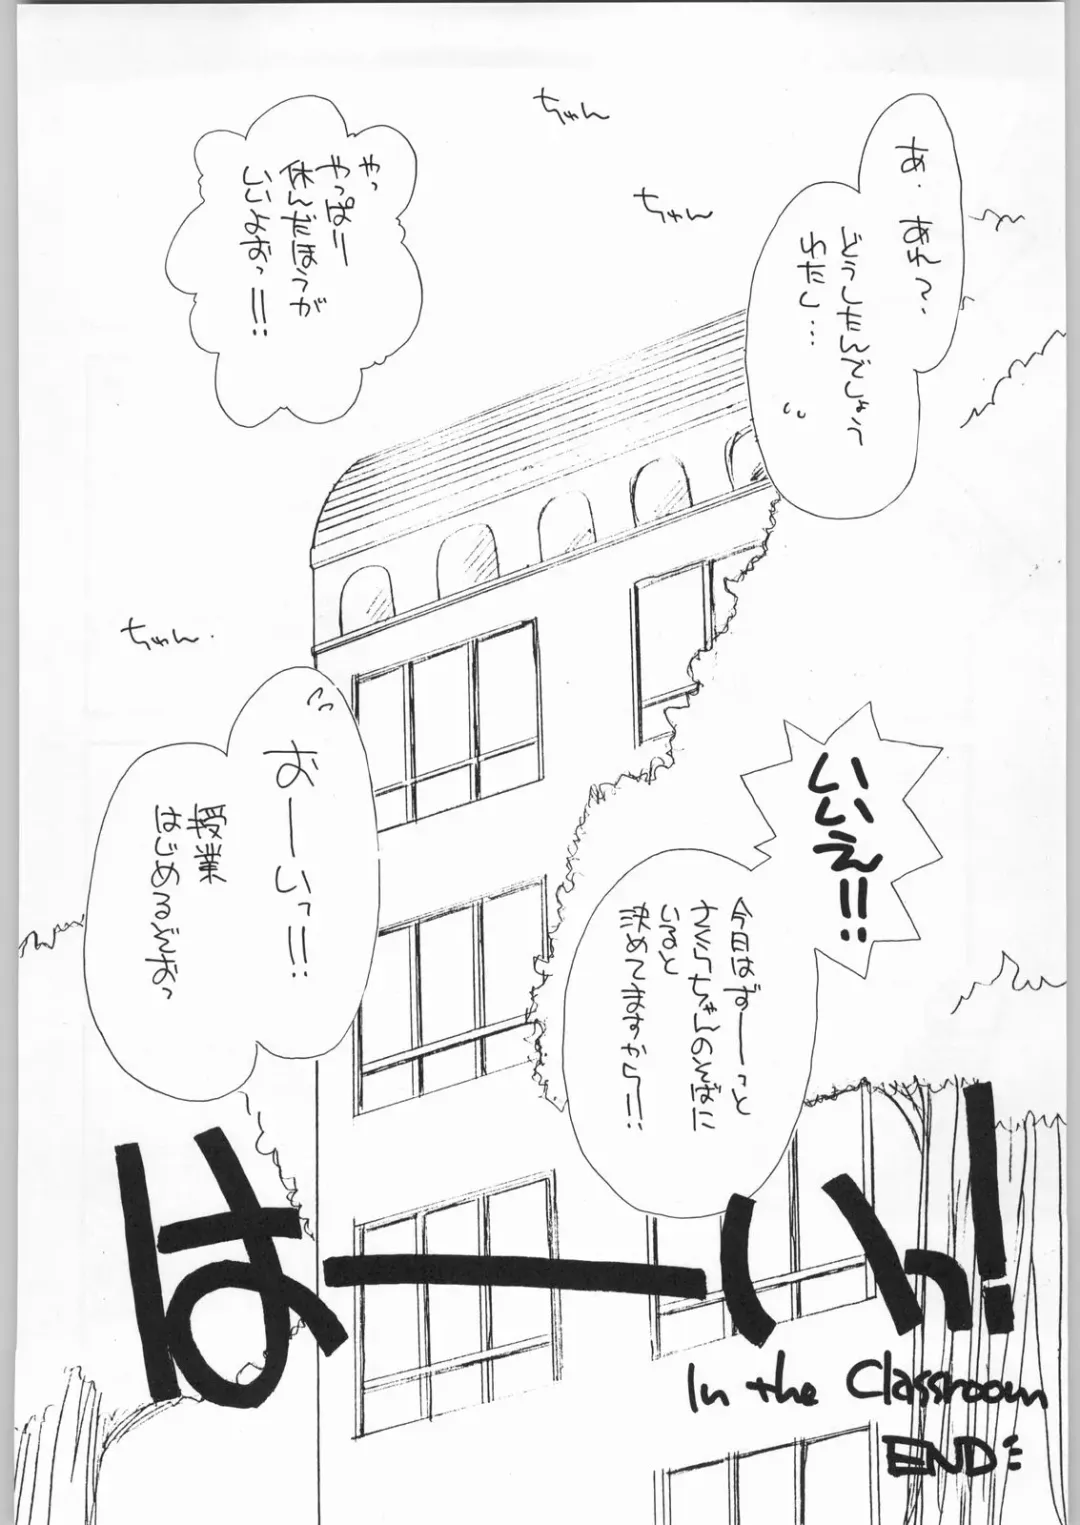 あ．あれ？
どうしたんでしょう
わたし…
ちゅん
ちゅん
やっ
やっぱりー
休んだほうが
いいよおっ!!
いいえ!!
今日はずーーっと
さくらちゃんのそばに
いると
決めてますから!!
ちゅん．
おーいっ!!
授業
はじめるぞおっ
はーいっ!
In the Classroom
END